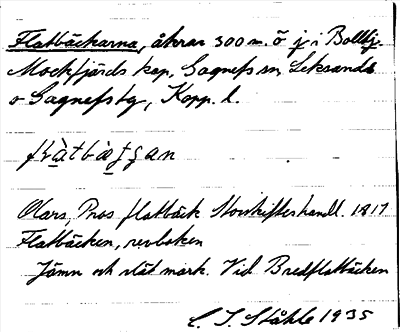 Flatbäckarna, åkrar 300 m. ö i Bollbj.
Mockfjärds kap, Gagnefs sn Leksands
o Gagnefs tg, Kopp. l.
Olars, Pros flatbäck Storskifteshandl. 1817
Flatbäcken, revboken
Jämn och slät mark. Vid Bredflatbäcken
C. I. Ståhle 1935